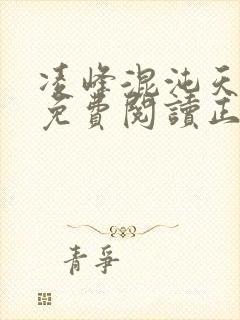 凌峰混沌天
免費閱讀正
青爭